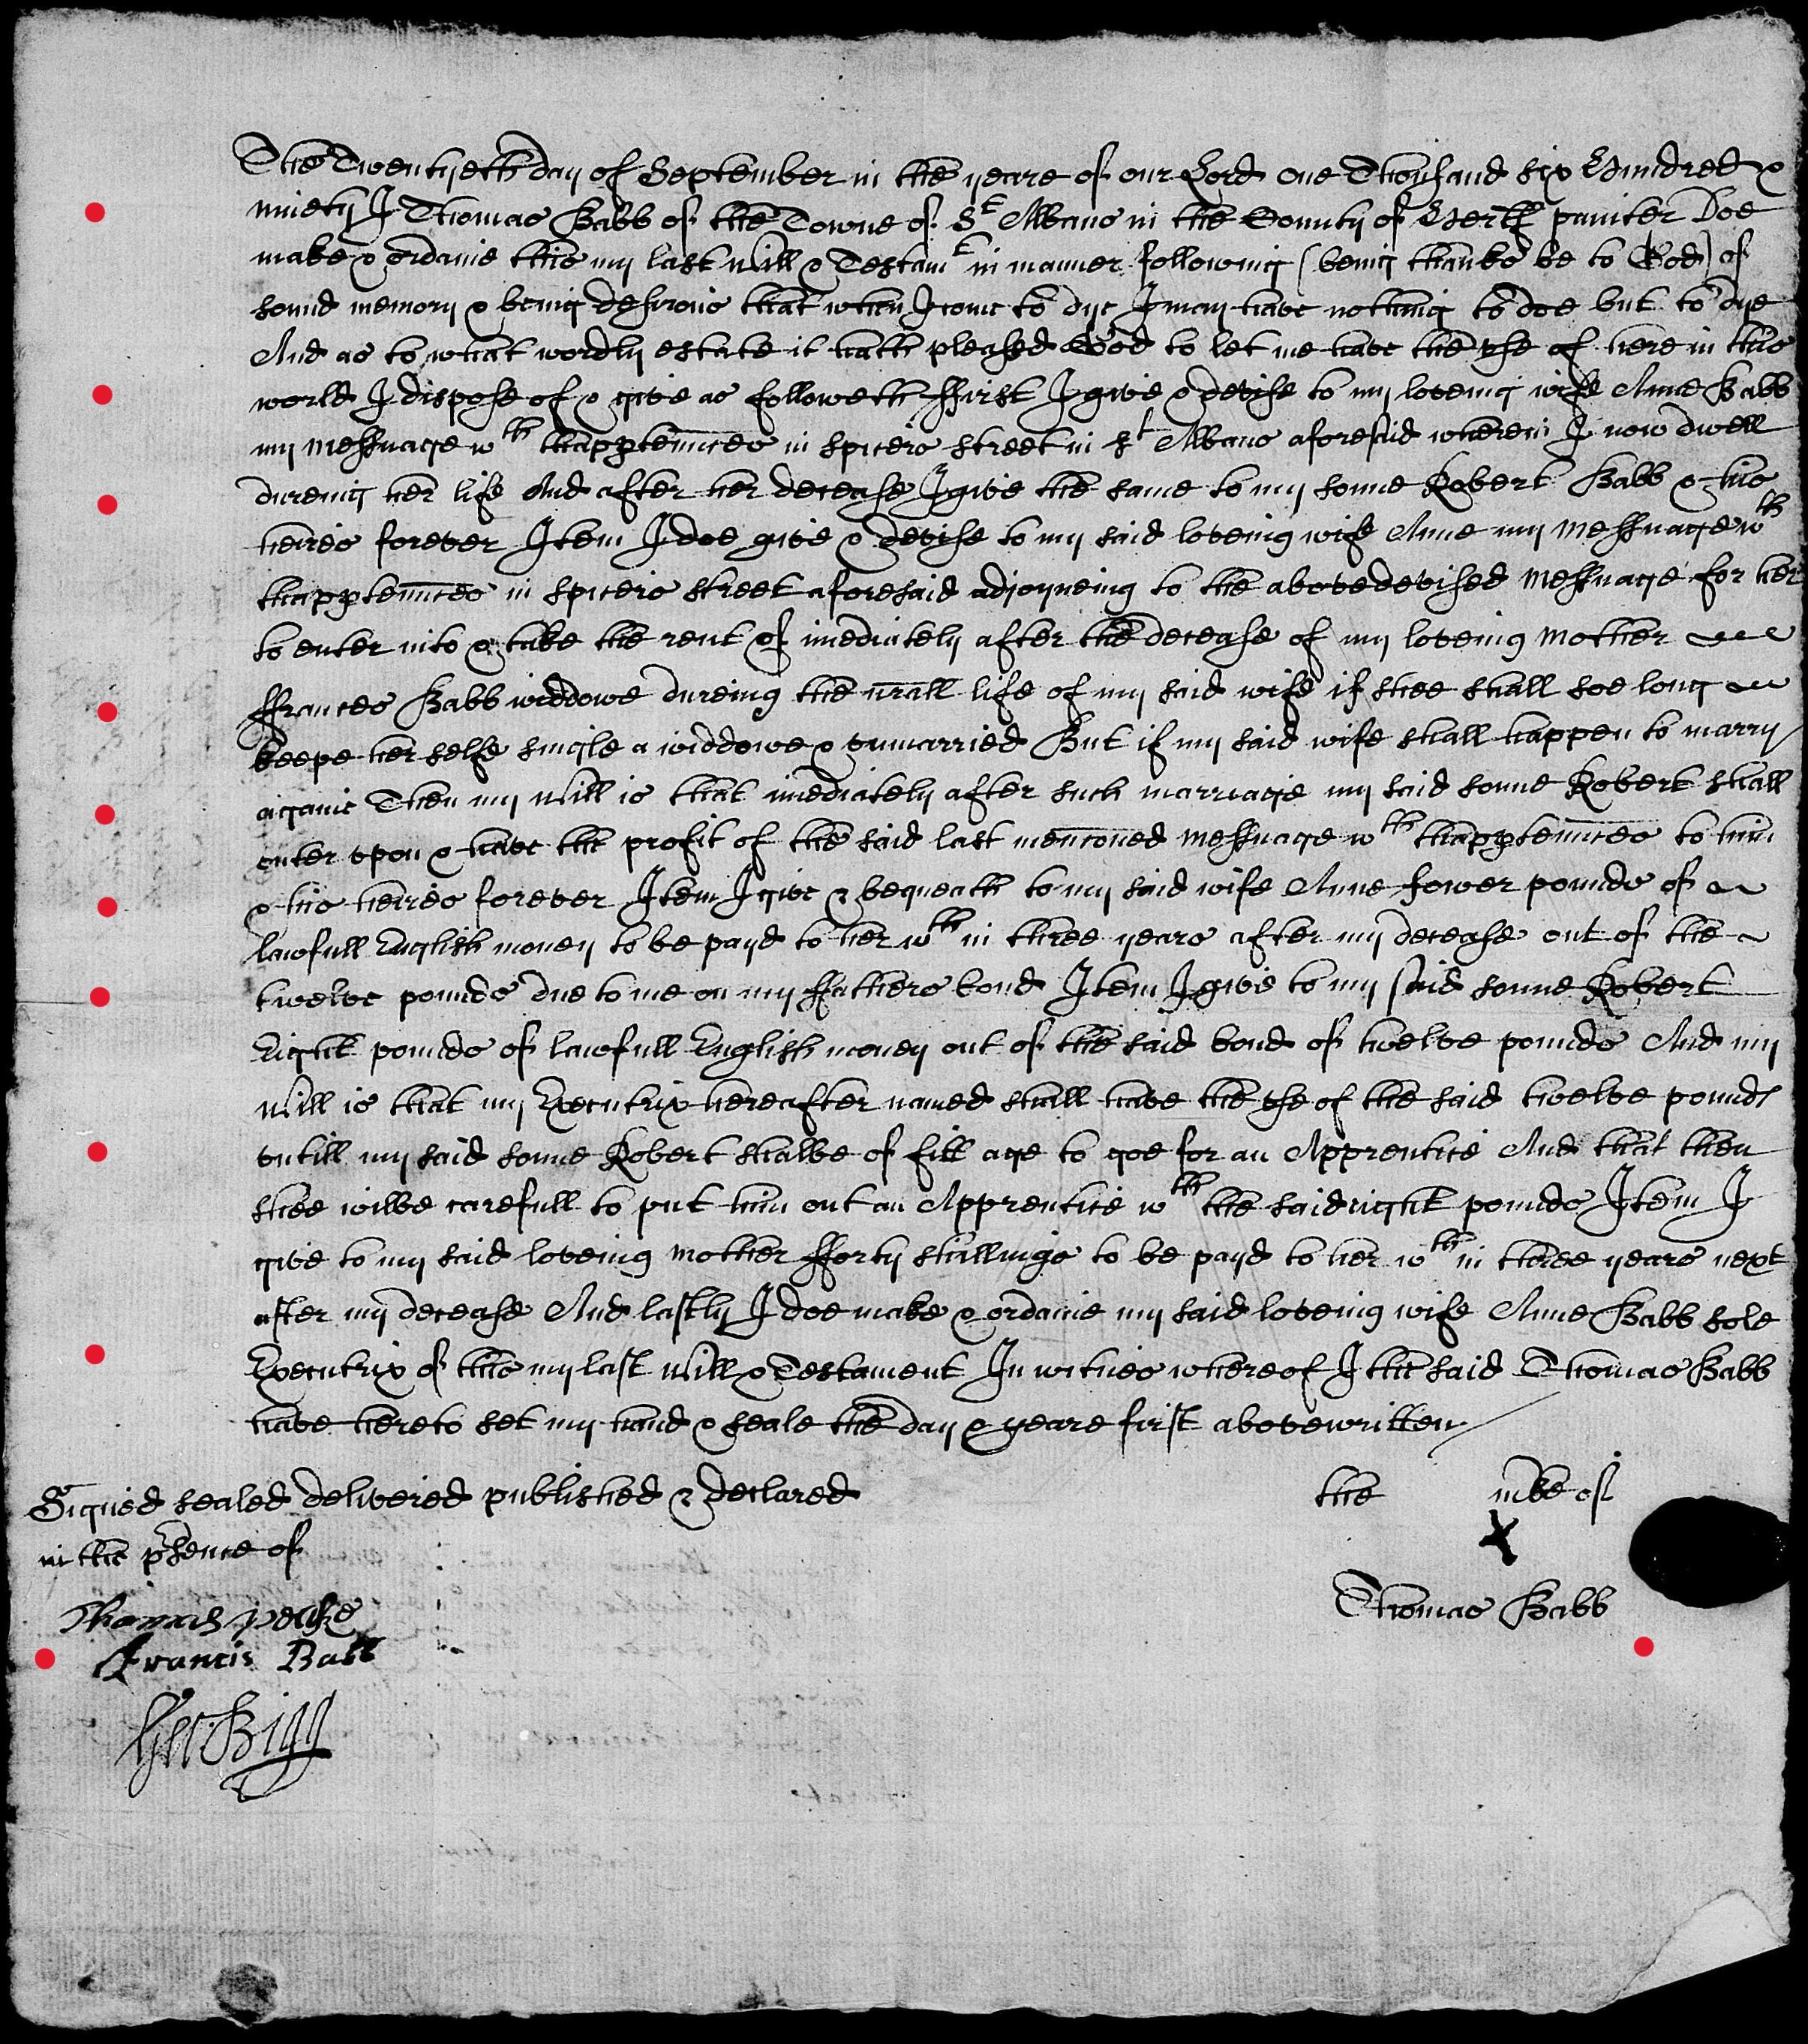 The Twentyeth day of September in the yeare of our Lord One Thousand six Hundred &
ninety I Thomas Babb of the Towne of St Albans in the County of Hertf painter Doe
make & ordaine this my last Will & Testamt in manner following (being thanks be to God) of
sound memory & being desirous that when I come to dye I may have nothing to doe but to dye
And as to what wordly estate it hath pleased God to let me have the vse of here in this
world I dispose of & give as followeth ffirst I give & devise to my loveing wife Anne Babb
my Messuage wth thapptennces in spicers street in St Albans aforesaid wherein I now dwell
dureing her life And after her decease I give the same to my sonne Robert Babb & his
heires forever Item I doe give & devise to my said loveing wife Anne my Messuage wth
thapptennces in spicers street aforesaid adjoyneing to the abovedevised Messuage for her
to enter into & take the rent of imediately after the decease of my loveing Mother
ffrances Babb widdowe dureing the nrall life of my said wife if shee shall soe long
keepe her selfe single a widdowe & vnmarried But if my said wife shall happen to marry
againe Then my Will is that imediately after such marriage my said sonne Robert shall
enter vpon & have the profit of the said last menconed Messuage wth thapptennces to him
& his heires forever Item I give & bequeath to my said wife Anne fower pounds of
lawfull English money to be payd to her wth in three years after my decease out of the
twelve pounds due to me on my ffathers bond Item I give to my said sonne Robert
Eight pounds of lawfull English money out of the said bond of twelve pounds And my
Will is that my Executrix hereafter named shall have the vse of the said twelve pounds
vntill my said sonne Robert shalbe of fitt age to goe for an Apprentice And that then
shee wilbe carefull to put him out an Apprentice wth the said eight pounds Item I
give to my said loveing Mother fforty shillings to be payd to her wth in three years next
after my decease And lastly I doe make & ordaine my said loveing wife Anne Babb sole
Executrix of this my last Will & Testament In witnes whereof I the said Thomas Babb
have hereto set my hand & seale the day & yeare first abovewritten
Signed sealed delivered published & declared
in the prsence of
the mrke of
X
Thomas Babb
Thomas pease
Francis Babb
Bigg